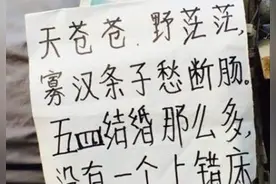 天苍苍.野茫茫,
寡汉条子愁断肠。
五四结婚那么多,
没有一个上错床